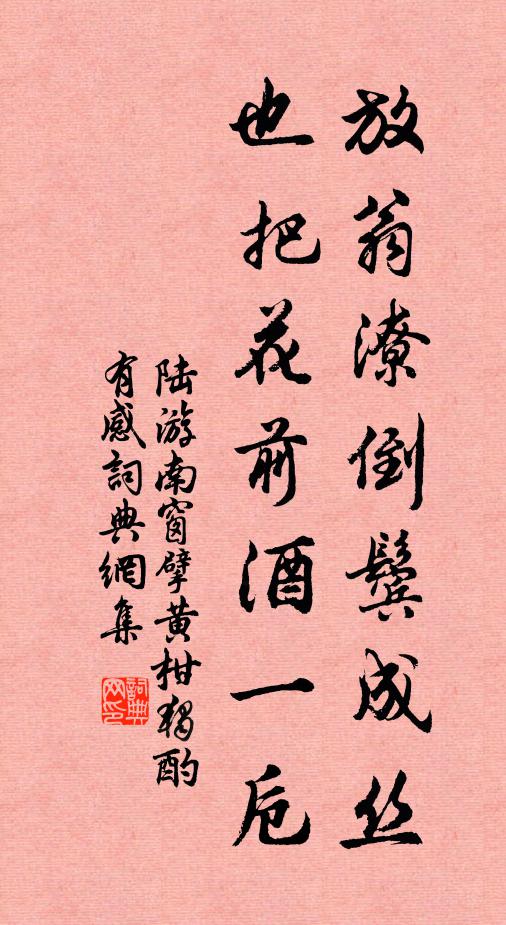 放翁潦倒鬓成丝
也把花前酒一卮
陆游南窗擘黄柑獨酌
有感詞典網集
詞典
网印